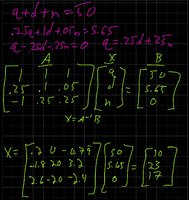 q+d+n=50
.25q+.1d+.05n=5.65
q-.25d-.25n=0 q=.25d+.25n
A X B
[1 1 1] [q] [50]
[.25 .1 .05] [d] = [5.65]
[-1 .25 .25] [n] [0]
X=A⁻¹B
X= [.2 0 -0.79] [50] [10]
[-1.8 20 3.2] [5.65] = [23]
[2.6 -20 -2.4] [0] [17]